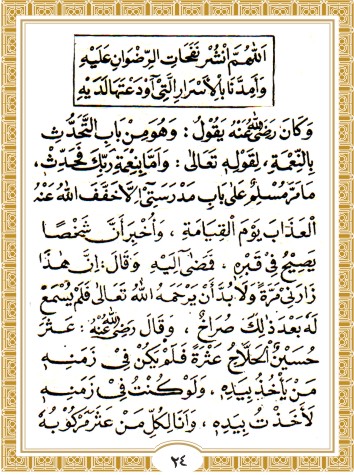 اَللّٰهُمَّ انْشُرْ نَفَحَاتِ الرِّضْوَانِ عَلَيْهِ
وَأَمِدَّنَا بِالْأَسْرَارِ الَّتِيْ أَوْدَعْتَهَا لَدَيْهِ
وَكَانَ رَضِيَ اللهُ عَنْهُ يَقُوْلُ : وَهُوَ مِنْ بَابِ التَّحَدُّثِ
بِالنِّعْمَةِ، لِقَوْلِهِ تَعَالَىٰ : وَأَمَّا بِنِعْمَةِ رَبِّكَ فَحَدِّثْ،
مَا مَرَّ مُسْلِمٌ عَلَى بَابِ مَدْرَسَتِيْ إِلَّا خَفَّفَ اللهُ عَنْهُ
الْعَذَابَ يَوْمَ الْقِيَامَةِ ، وَأُخْبِرَ أَنَّ شَخْصًا
يَصِيْحُ فِيْ قَبْرِهِ ، فَمَضَى إِلَيْهِ وَقَالَ : إِنَّ هٰذَا
زَارَنِيْ مَرَّةً وَلَا بُدَّ أَنْ يَرْحَمَهُ اللهُ تَعَالَى فَلَمْ يُسْمَعْ
لَهُ بَعْدَ ذٰلِكَ صُرَاخٌ ، وَقَالَ رَضِيَ اللهُ عَنْهُ : عَثَرَ
حُسَيْنٌ الْحَلَّاجُ عَثْرَةً فَلَمْ يَكُنْ فِيْ زَمَنِهِ
مَنْ يَأْخُذُ بِيَدِهِ ، وَلَوْ كُنْتُ فِيْ زَمَنِهِ
لَأَخَذْتُ بِيَدِهِ ، وَأَنَا لِكُلِّ مَنْ عَثَرَ مَرْكُوْبُهُ
٢٤